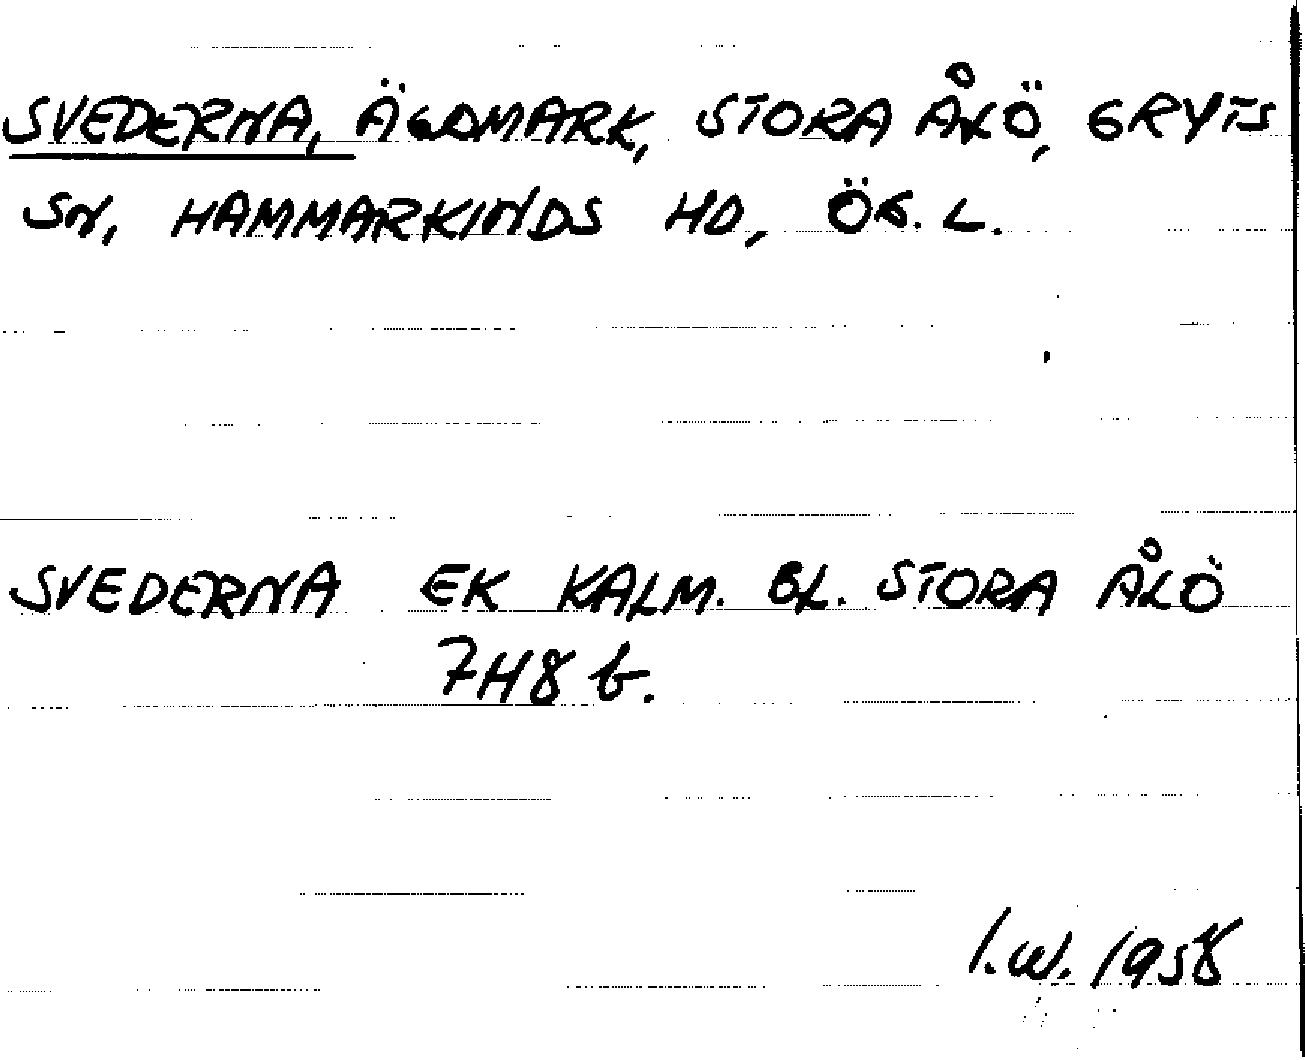 SVEDERNA, ÄGOMARK, STORA ÅLÖ, GRYTS
SN, HAMMARKINDS HD, ÖG. L.
SVEDERNA EK KALM. BL. STORA ÅLÖ
7H8 b.
I.W. 1958